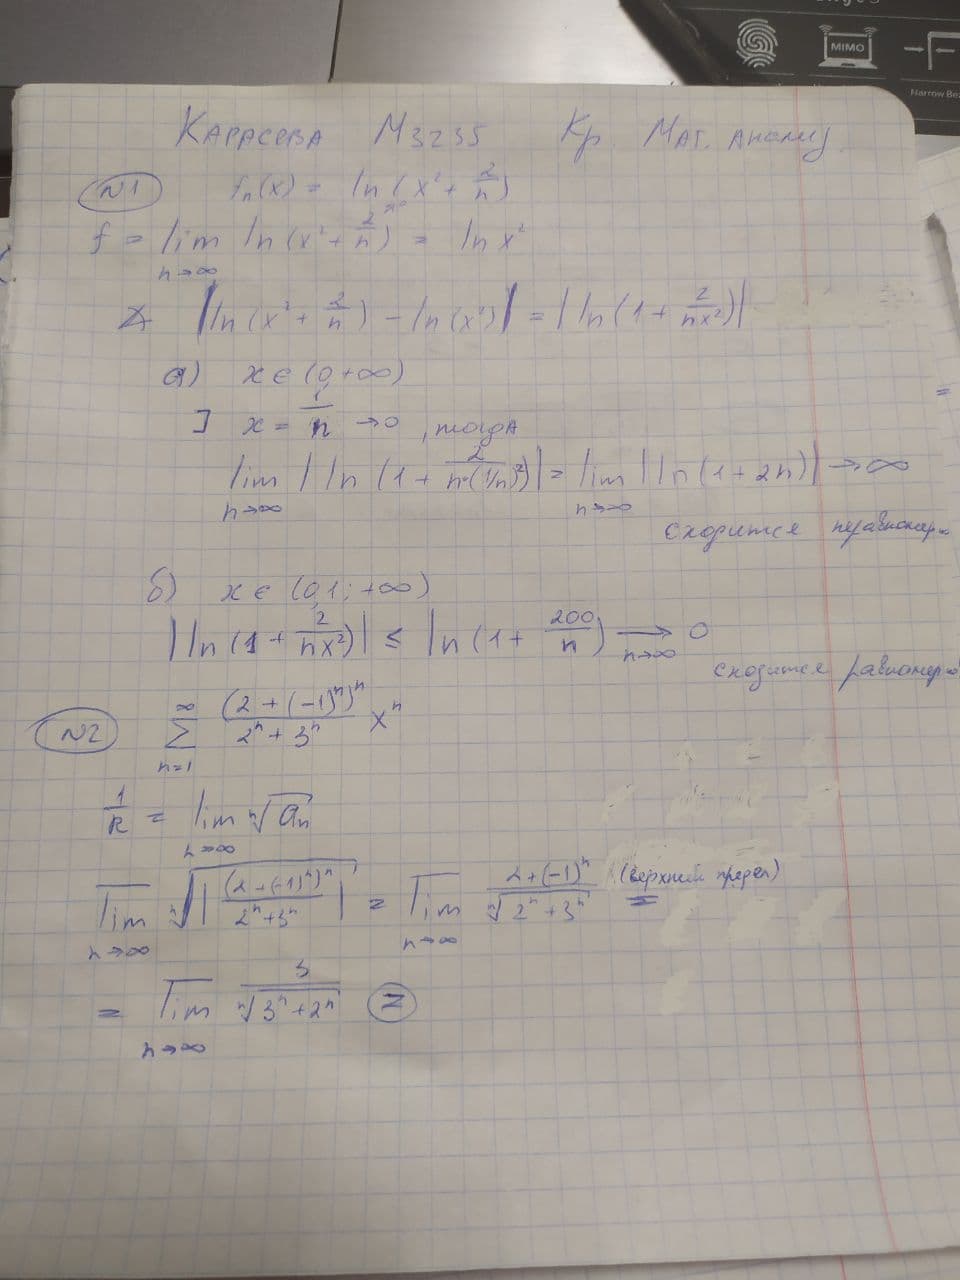 MIMO
Narrow Be
Карасева М3235 Кр Мат. анализ.
N1 fₙ(x) = ln(x² + 2/n)
f = lim n→∞ ln(x² + 2/n) = ln x²
|ln(x² + 2/n) - ln(x²)| = |ln(1 + 2/(nx²))|
а) x ∈ (0, +∞)
] x = 1/n → 0, тогда
lim n→∞ |ln(1 + 2/(n·(1/n)²))| = lim n→∞ |ln(1 + 2n)| → ∞
сходится неравномер-
б) x ∈ (0,1; +∞)
|ln(1 + 2/(nx²))| ≤ ln(1 + 200/n) → n→∞ 0
сходится равномер-
N2 ∑ n=1 ∞ (2 + (-1)ⁿ)ⁿ/(2ⁿ + 3ⁿ) xⁿ
1/R = lim n→∞ ⁿ√aₙ
lim n→∞ ⁿ√|(2 + (-1)ⁿ)ⁿ/(2ⁿ + 3ⁿ)| = lim n→∞ (2 + (-1)ⁿ)/ⁿ√(2ⁿ + 3ⁿ) (верхний предел) =
= lim n→∞ 3/ⁿ√(3ⁿ + 2ⁿ) =